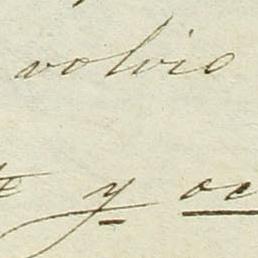 volvio
y oc